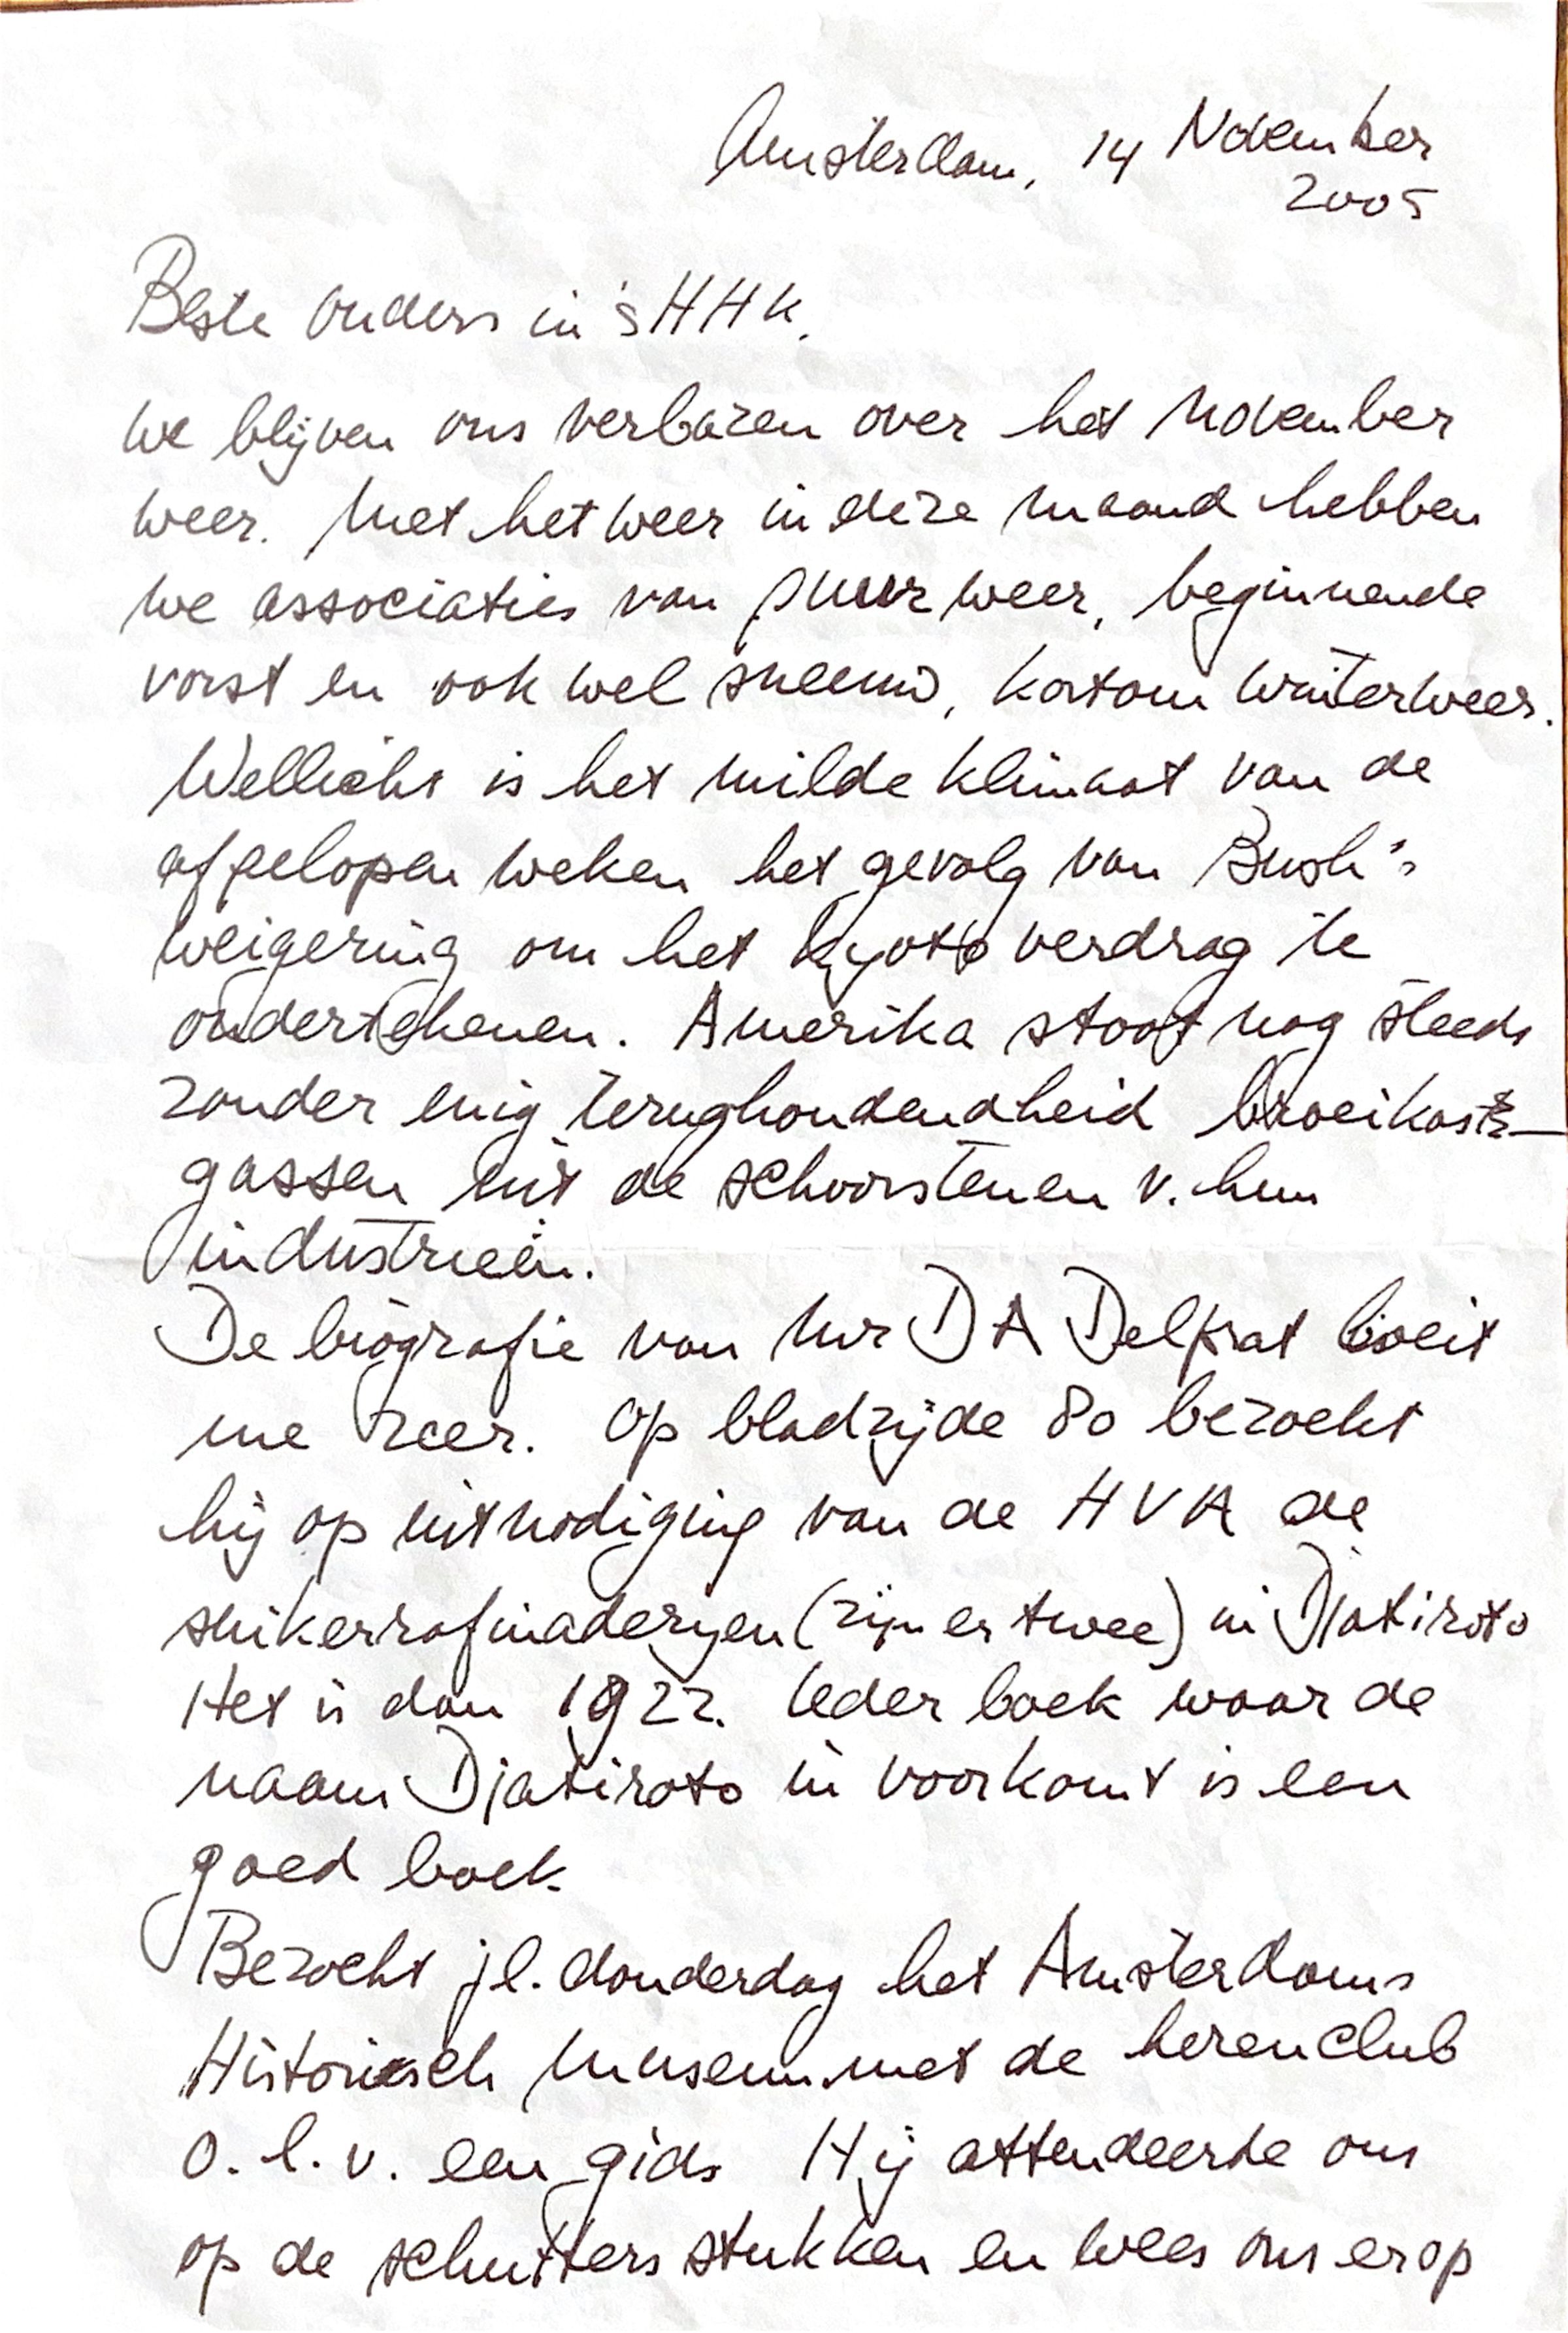 Amsterdam, 14 November
2005
Beste ouders in 's HHK.
We blijven ons verbazen over het November
weer. Met het weer in deze maand hebben
we associaties van guur weer, beginnende
vorst en ook wel sneeuw, kortom winterweer.
Wellicht is het milde klimaat van de
afgelopen weken het gevolg van Bush's
weigering om het Kyoto verdrag te
ondertekenen. Amerika stoot nog steeds
zonder enig terughoudendheid broeikas-
gassen uit de schoorstenen v. hun
industrieën.
De biografie van Mr D A Delprat boeit
me zeer. Op bladzijde 80 bezocht
hij op uitnodiging van de HVA de
suikerrafinaderijen (zijn er twee) in Djatiroto
Het is dan 1922. Ieder boek waar de
naam Djatiroto in voorkomt is een
goed boek.
Bezocht jl. donderdag het Amsterdams
Historisch Museum met de herenclub
o.l.v. een gids Hij attendeerde ons
op de schuttersstukken en wees ons erop